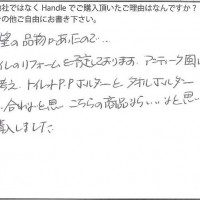 社ではなく Handle でご購入頂いたご理由はなんですか？
の他ご自由にお書き下さい。
望の品物があったので…
イレのリフォームを予定しております。アンティーク風に
考え、トイレットP.Pホルダーと タオルホルダー
合わせと思 こちらの商品なら いい なと思
購入しました